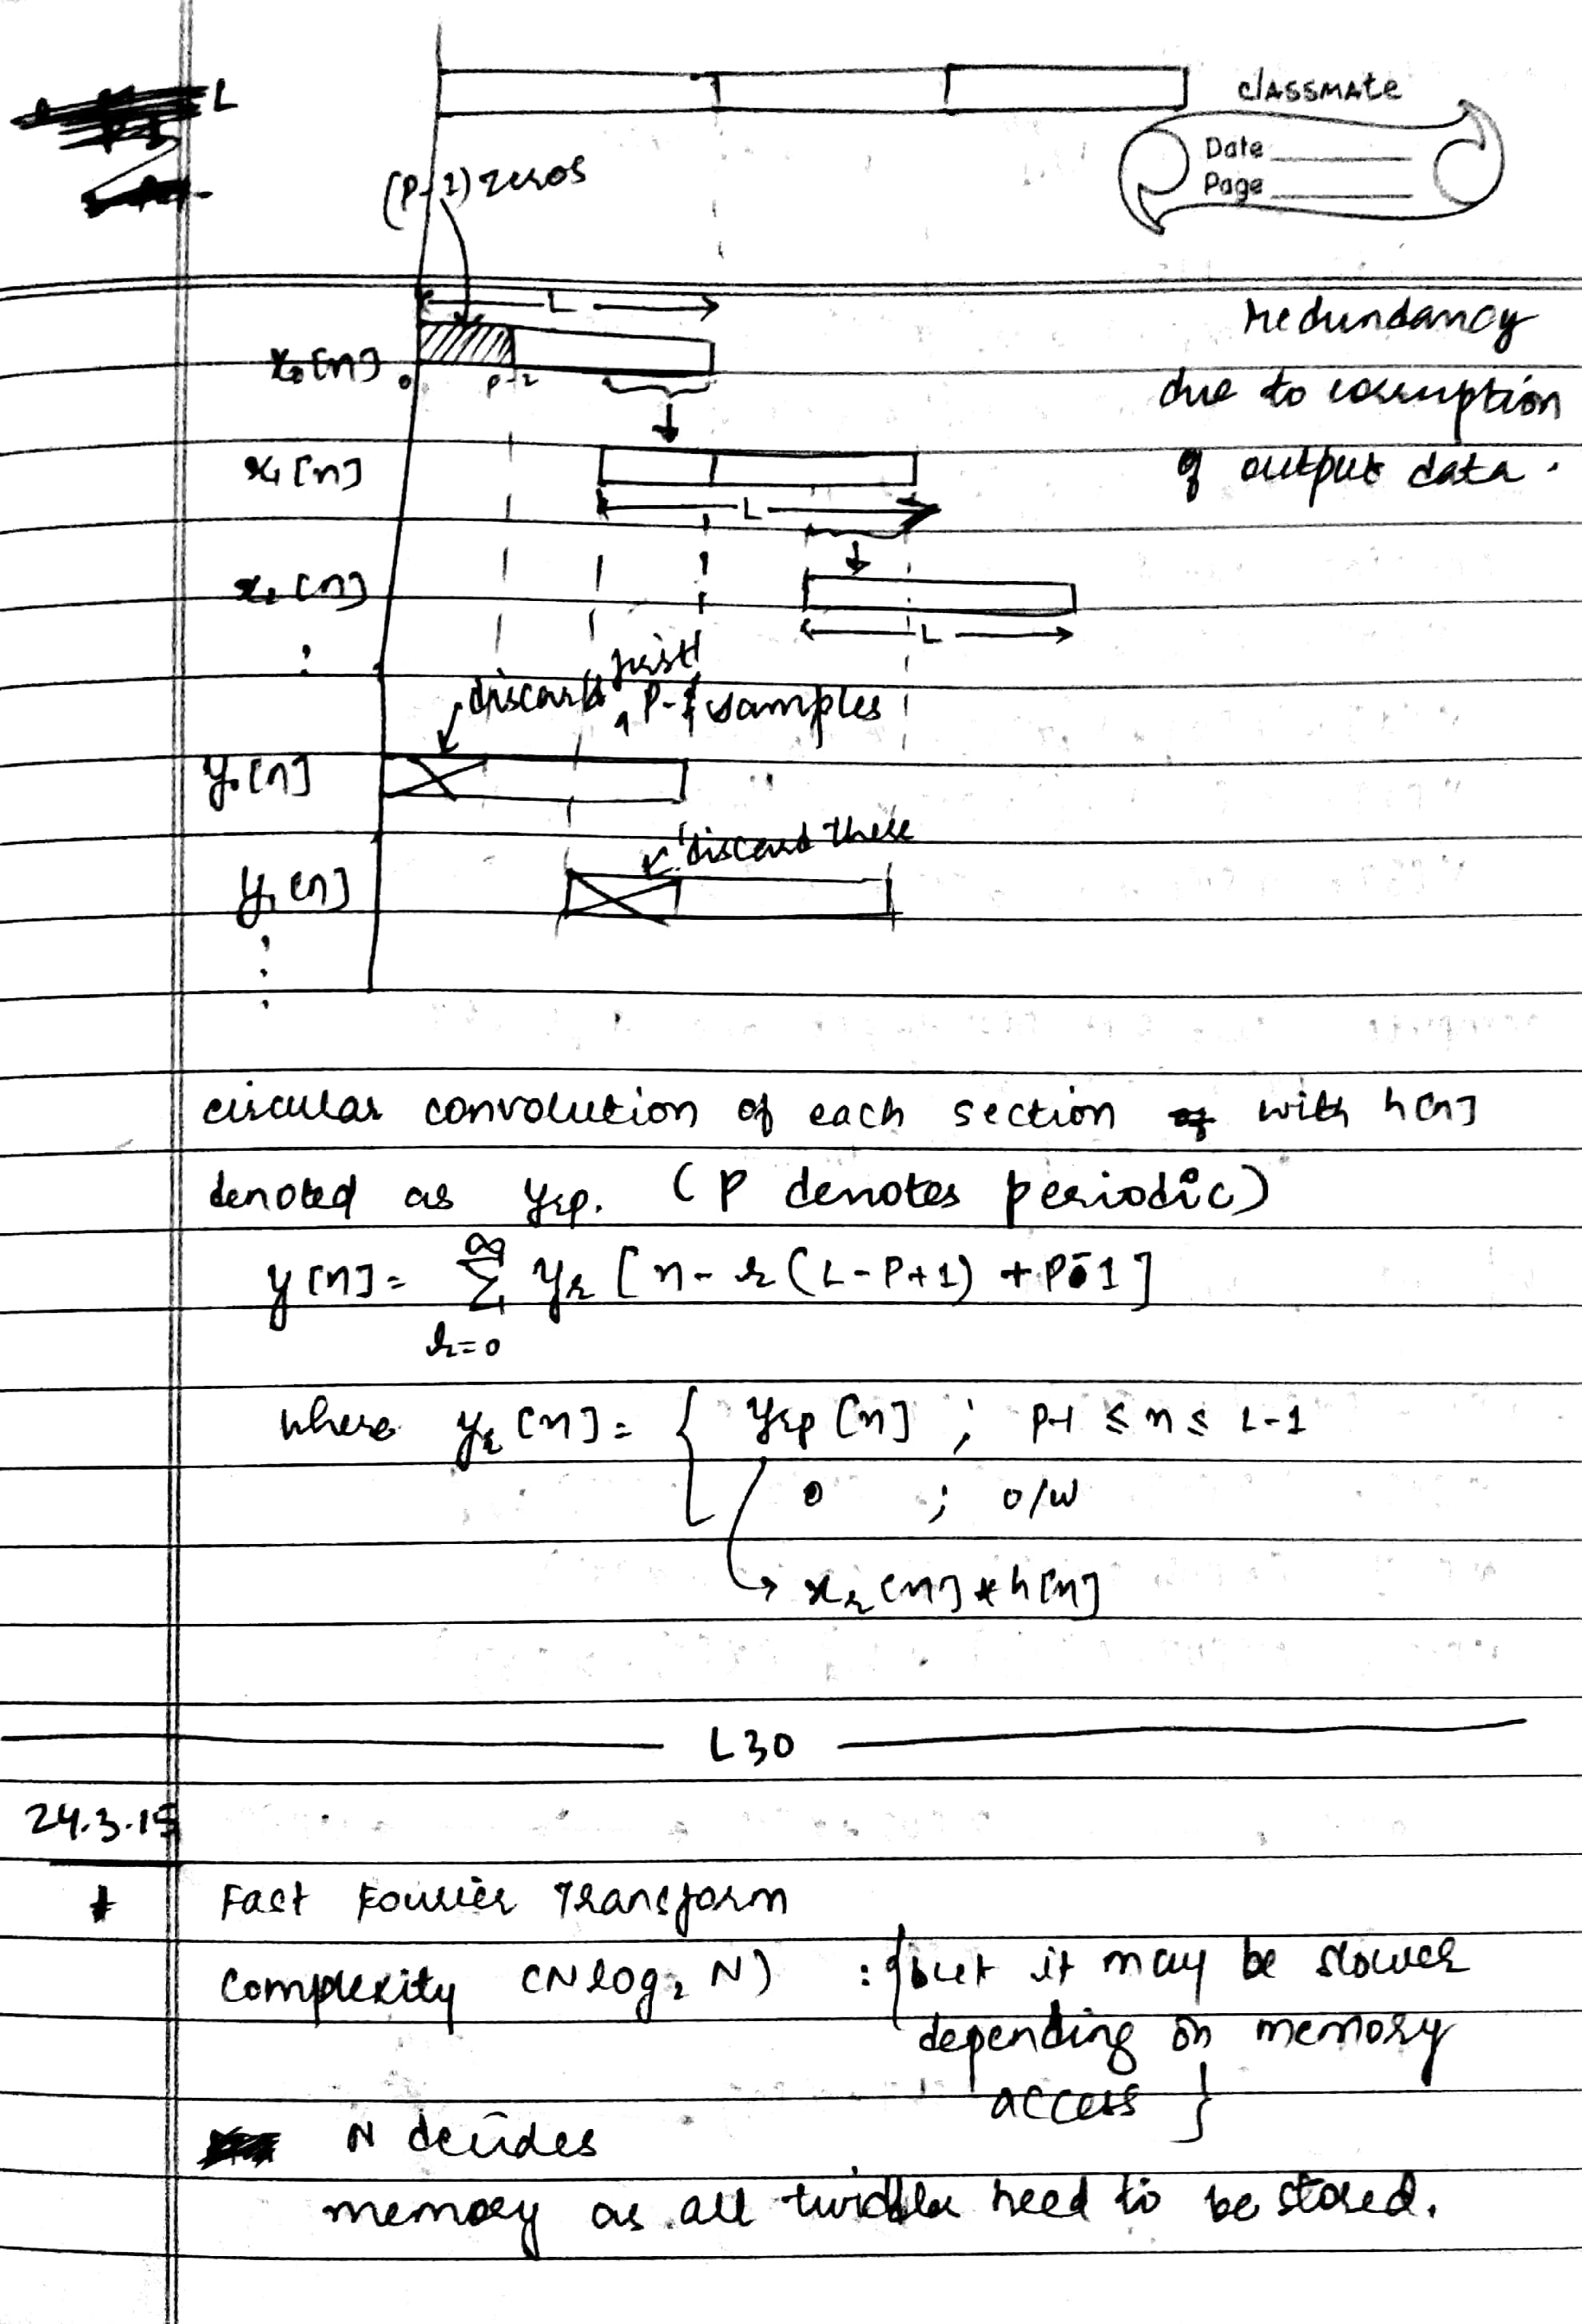 L
classmate
Date
Page
(P-1) zeros
L
redundancy
x₀[n] 0 P-2
due to corruption
x₁[n]
of output data.
L
x₂[n]
L
:
discard first P-1 samples
y₀[n]
discard these
y₁[n]
⋮
circular convolution of each section with h[n]
denoted as yrp. (P denotes periodic)
y[n] = ∞ Σ r=0 yr [n - r(L-P+1) + P-1]
where yr[n] = { yrp[n] ; P-1 ≤ n ≤ L-1
0 ; o/w
→ xr[n] * h[n]
L30
24.3.15
* Fast Fourier Transform
Complexity (N log₂ N) : {but it may be slower
depending on memory
access }
N decides
memory as all twiddle need to be stored.